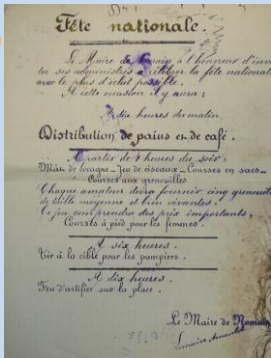 Fête nationale.
Le Maire de a l'honneur d'invi
ter ses administrés à célébrer la fête nationale
avec le plus d'éclat possible.
A cette occasion il y aura:
A dix heures du matin.
Distribution de pains et de café.
A partir de 4 heures du soir.
Mât de cocagne - Jeu de ciseaux - Courses en sacs -
Courses aux grenouilles
Chaque amateur devra fournir cinq grenouilles
de taille moyenne et bien vivantes.
Ce jeu comprendra des prix importants.
Courses à pied pour les femmes.
A six heures.
Tir à la cible pour les pompiers.
A dix heures.
Feu d'artifice sur la place.
Le Maire de